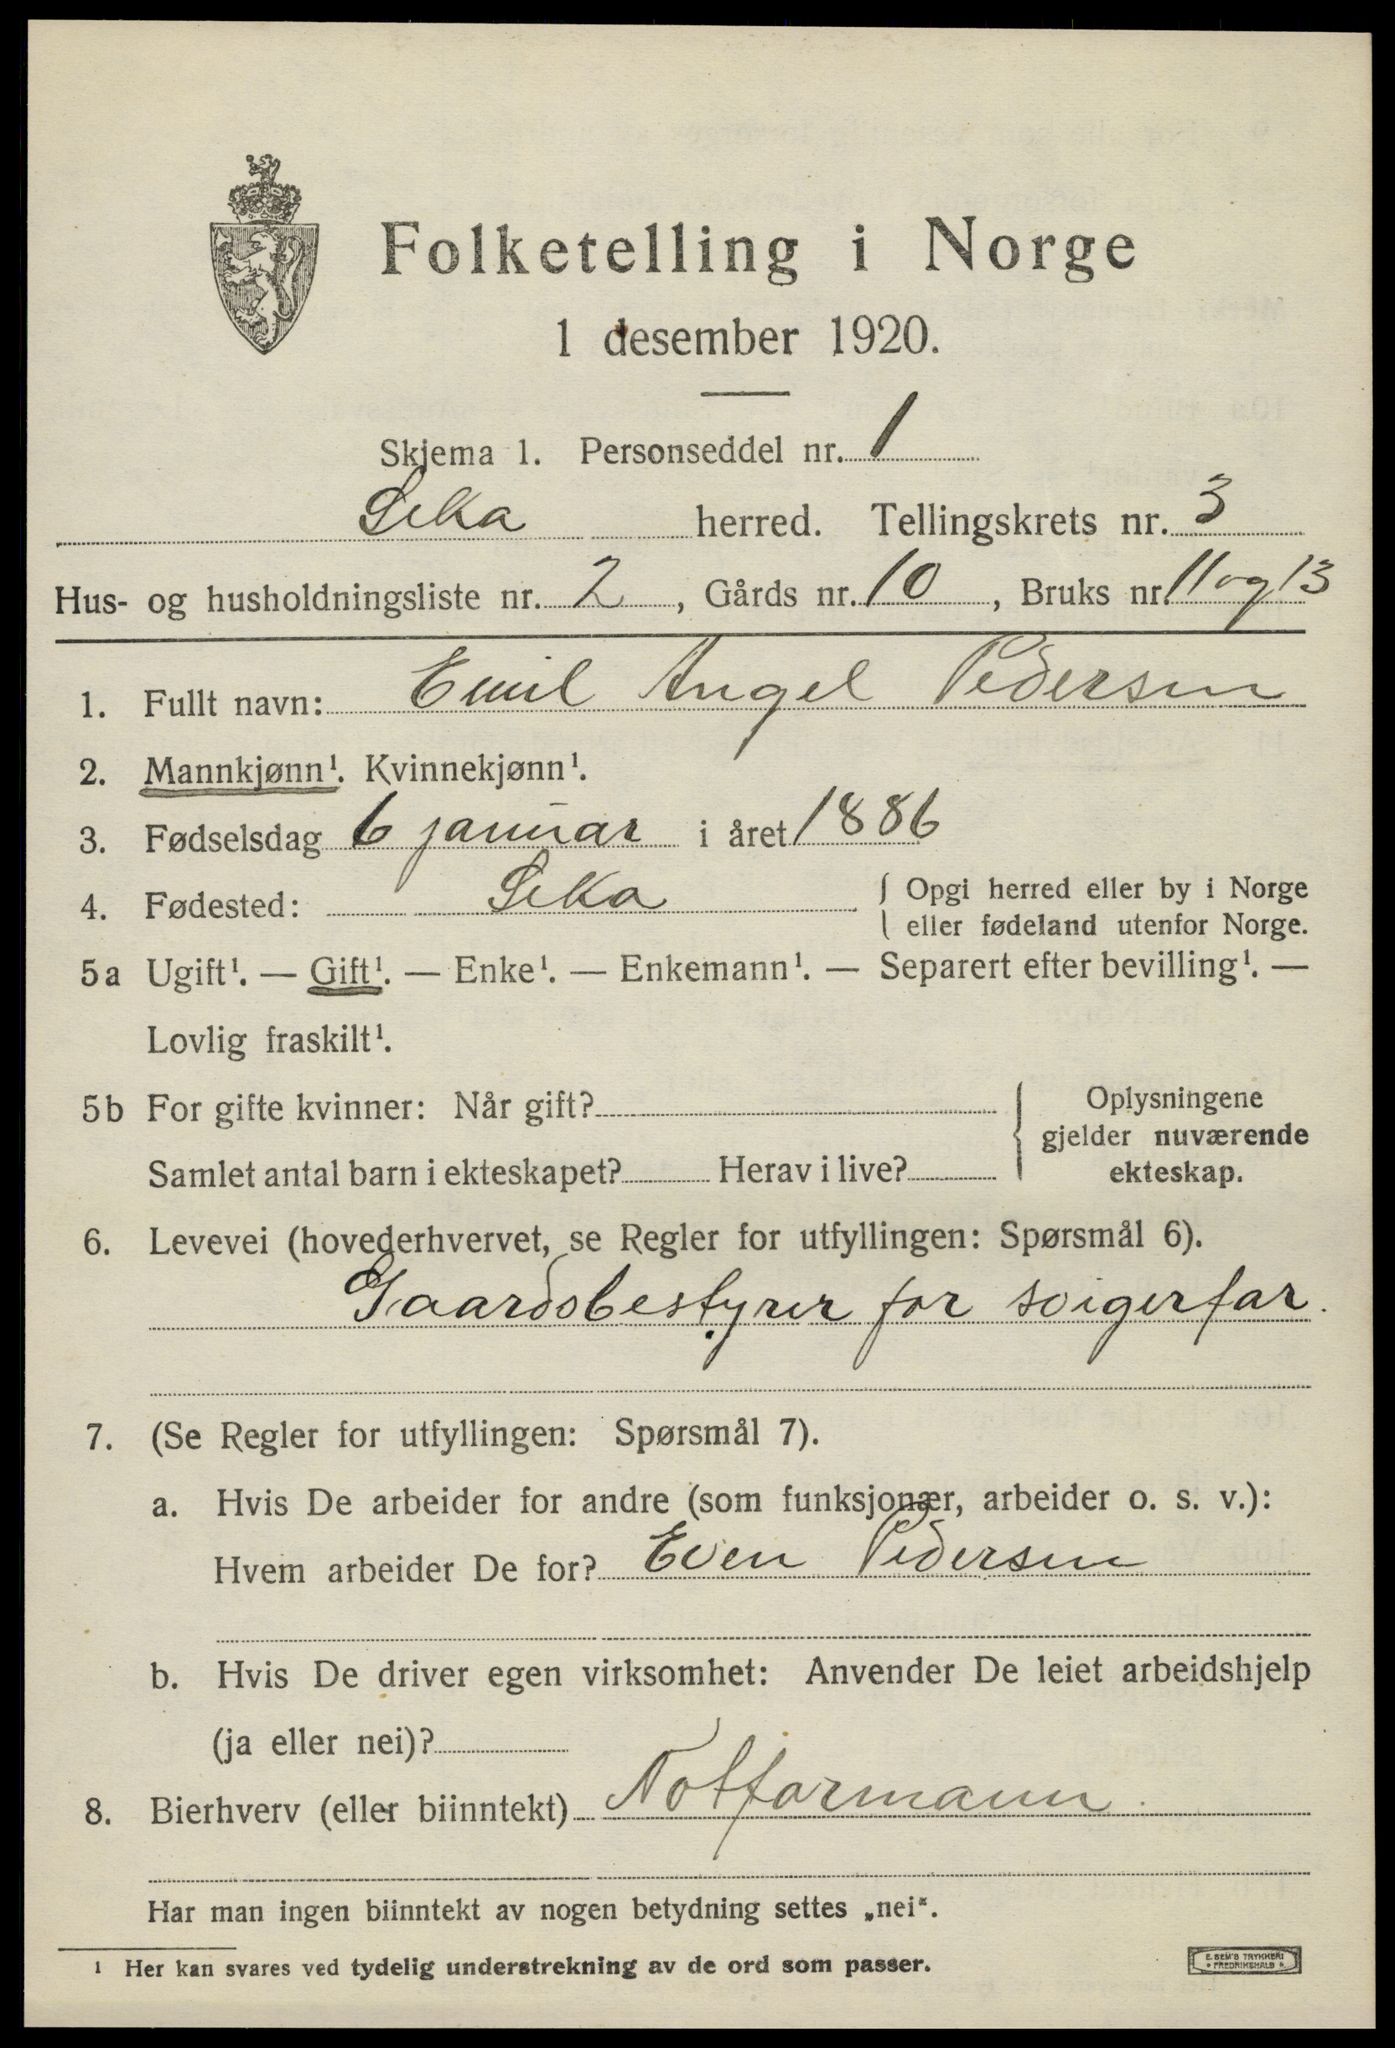 Folketelling i Norge
1 desember 1920.
Skjema 1. Personseddel nr. 1
Leka herred. Tellingskrets nr. 3
Hus- og husholdningsliste nr. 2, Gårds nr. 10, Bruks nr. 11 og 13
1. Fullt navn: Emil Angel Pedersen
2. Mannkjønn¹. Kvinnekjønn¹.
3. Fødselsdag 6 januar i året 1886
4. Fødested: Leka { Opgi herred eller by i Norge
eller fødeland utenfor Norge.
5a Ugift¹. — Gift¹. — Enke¹. — Enkemann¹. — Separert efter bevilling¹. —
Lovlig fraskilt¹.
5b For gifte kvinner: Når gift? { Oplysningene
gjelder nuværende
Samlet antal barn i ekteskapet? Herav i live? ekteskap.
6. Levevei (hovederhvervet, se Regler for utfyllingen: Spørsmål 6).
Gaardsbestyrer for svigerfar.
7. (Se Regler for utfyllingen: Spørsmål 7).
a. Hvis De arbeider for andre (som funksjonær, arbeider o. s. v.):
Hvem arbeider De for? Even Pedersen
b. Hvis De driver egen virksomhet: Anvender De leiet arbeidshjelp
(ja eller nei)?
8. Bierhverv (eller biinntekt) Notformann.
Har man ingen biinntekt av nogen betydning settes „nei“.
¹ Her kan svares ved tydelig understrekning av de ord som passer.
E. SEM'S TRYKKERI
* FREDRIKSHALD *